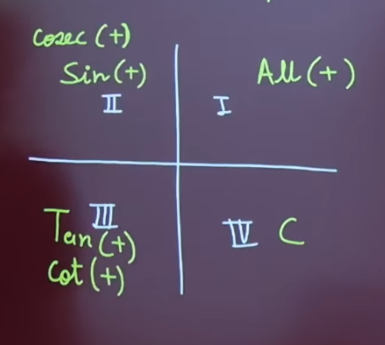 cosec (+)
Sin (+)
II
I
All (+)
III
Tan (+)
Cot (+)
IV C